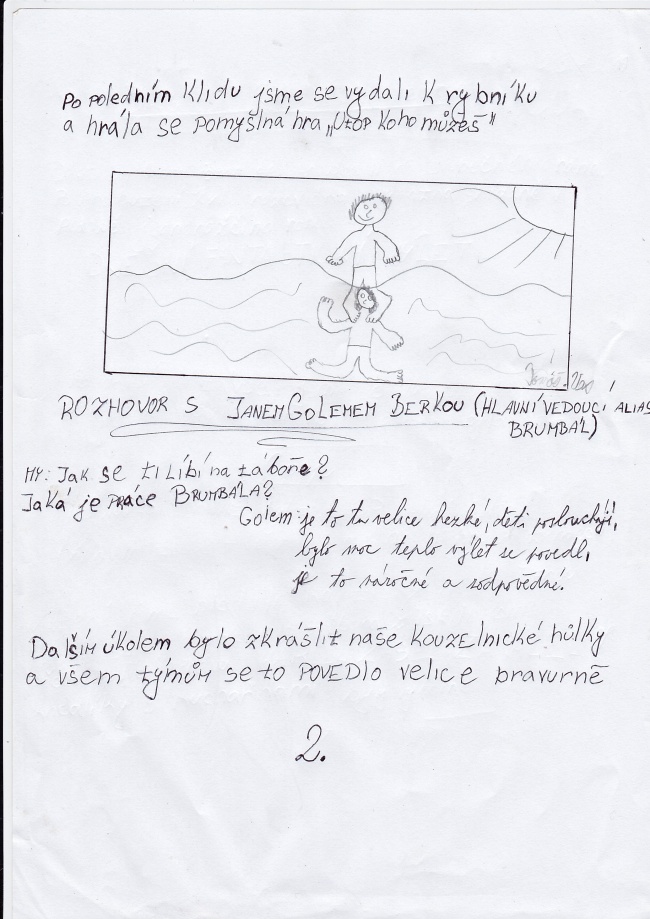 Po poledním klidu jsme se vydali k rybníku
a hrála se pomyslná hra „Utop koho můžeš"
Tomáš
ROZHOVOR S JANEM GOLEMEM BERKOU (HLAVNÍ VEDOUCÍ ALIAS
BRUMBÁL)
MY: Jak se ti líbí na táboře?
Jaká je práce BRUMBÁLA?
Golem: je to tu velice hezké, děti poslouchají,
bylo moc teplo výlet se povedl,
je to náročné a zodpovědné.
Dalším úkolem bylo zkrášlit naše kouzelnické hůlky
a všem týmům se to POVEDLO velice bravurně
2.